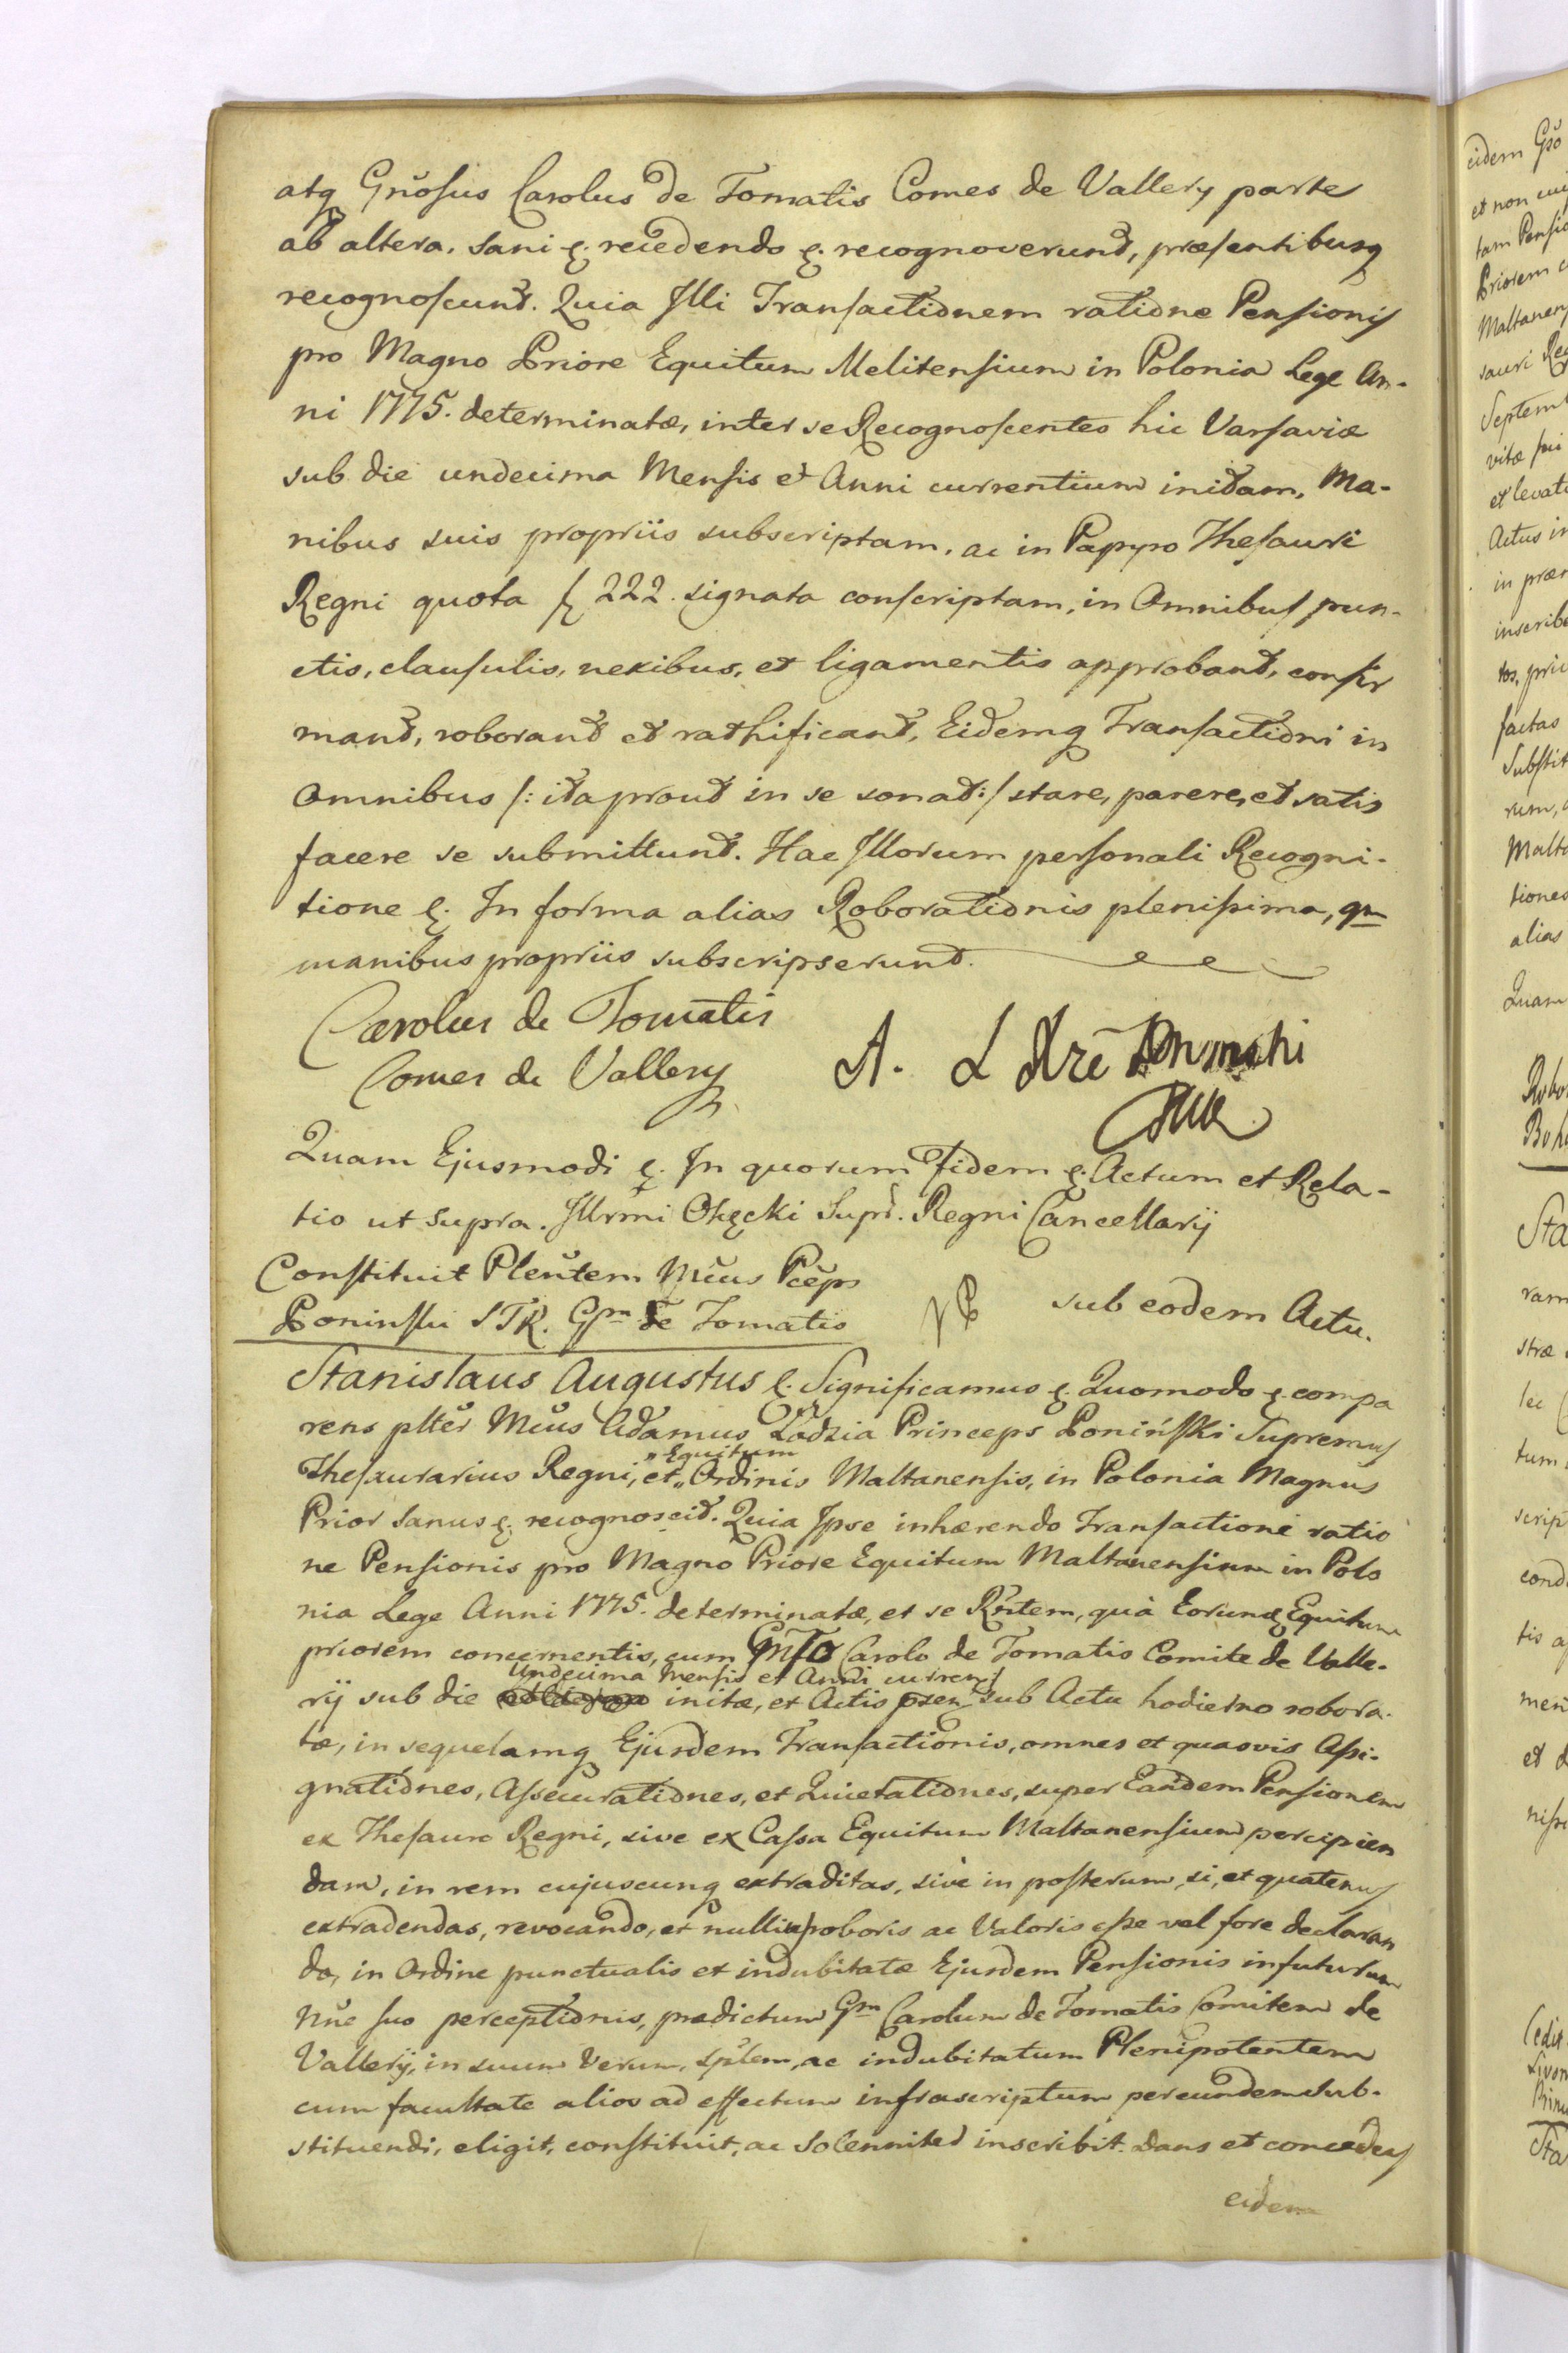 atq Gnosus Carolus de Tomatis Comes de Vallery parte
ab altera. Sani &. recedendo &. recognoverunt, præsentibusq
recognoscunt. Quia Illi Transactionem ratione Pensionis
pro Magno Priore Equitum Melitensium in Polonia Lege An-
ni 1775. determinatæ, inter se Recognoscentes hic Varsaviæ
sub die undecima Mensis et Anni currentium initam, Ma-
nibus suis propriis subscriptam, ac in Papyro Thesauri
Regni quota 222. signata conscriptam, in Omnibus pun-
ctis, clausulis, nexibus, et ligamentis approbant, confir
mant, roborant et rathificant, Eidemq Transactioni in
Omnibus /: ita prout in se sonat :/ stare, parere, et satis
facere se submittunt. Hac Illorum personali Recogni-
tione &. In forma alias Roborationis plenissima, qm
manibus propriis subscripserunt.
Carolus de Tomatis
Comes de Vallery
A. L
Quam Ejusmodi &. In quorum Fidem &. Actum et Rela-
tio ut Supra. Illrmi Okęcki Supr. Regni Cancellarij
Constituit Plentem Mcus Pceps
Poninski STR. Gsm de Tomatis
sub eodem Actu.
Stanislaus Augustus &. Significamus &. Quomodo &. compa
rens plter Mcus Adamus Łodzia Princeps Poniński Supremus
Thesaurarius Regni, et "Equitum" Ordinis Maltanensis, in Polonia Magnus
Prior Sanus &. recognoscit. Quia Ipse inhærendo Transactioni ratio
ne Pensionis pro Magno Priore Equitum Maltanensium in Polo
nia Lege Anni 1775. determinatæ, et se Rntem, quà Eorundq Equitum
priorem concernentis, cum Carolo de Tomatis Comite de Valle-
rÿ sub die Undecima Mensis et Anni currentis initæ, et Actis psen sub Actu hodierno robora-
tæ, in sequelamq Ejusdem Transactionis, omnes et quasvis Assi-
gnationes, Assecurationes, et Quietationes, super Eandem Pensionem
ex Thesauro Regni, sive ex Cassa Equitum Maltanensium percipien
dam, in rem cujuscunq extraditas, sivè in posterum, si, et quatenus
extradendas, revocando, et nullius roboris ac Valoris esse vel fore declaran
do, in Ordine punctualis et indubitatæ Ejusdem Pensionis in futurum
Nne suo perceptionis, prædictum Gm Carolum de Tomatis Comitem de
Vallerÿ, in suum Verum, splem, ac indubitatum Plenipotentem
cum facultate alios ad effectum infrascriptum per eundem sub-
stituendi, eligit, constituit, ac Solenniter inscribit. Dans et concedens
eidem